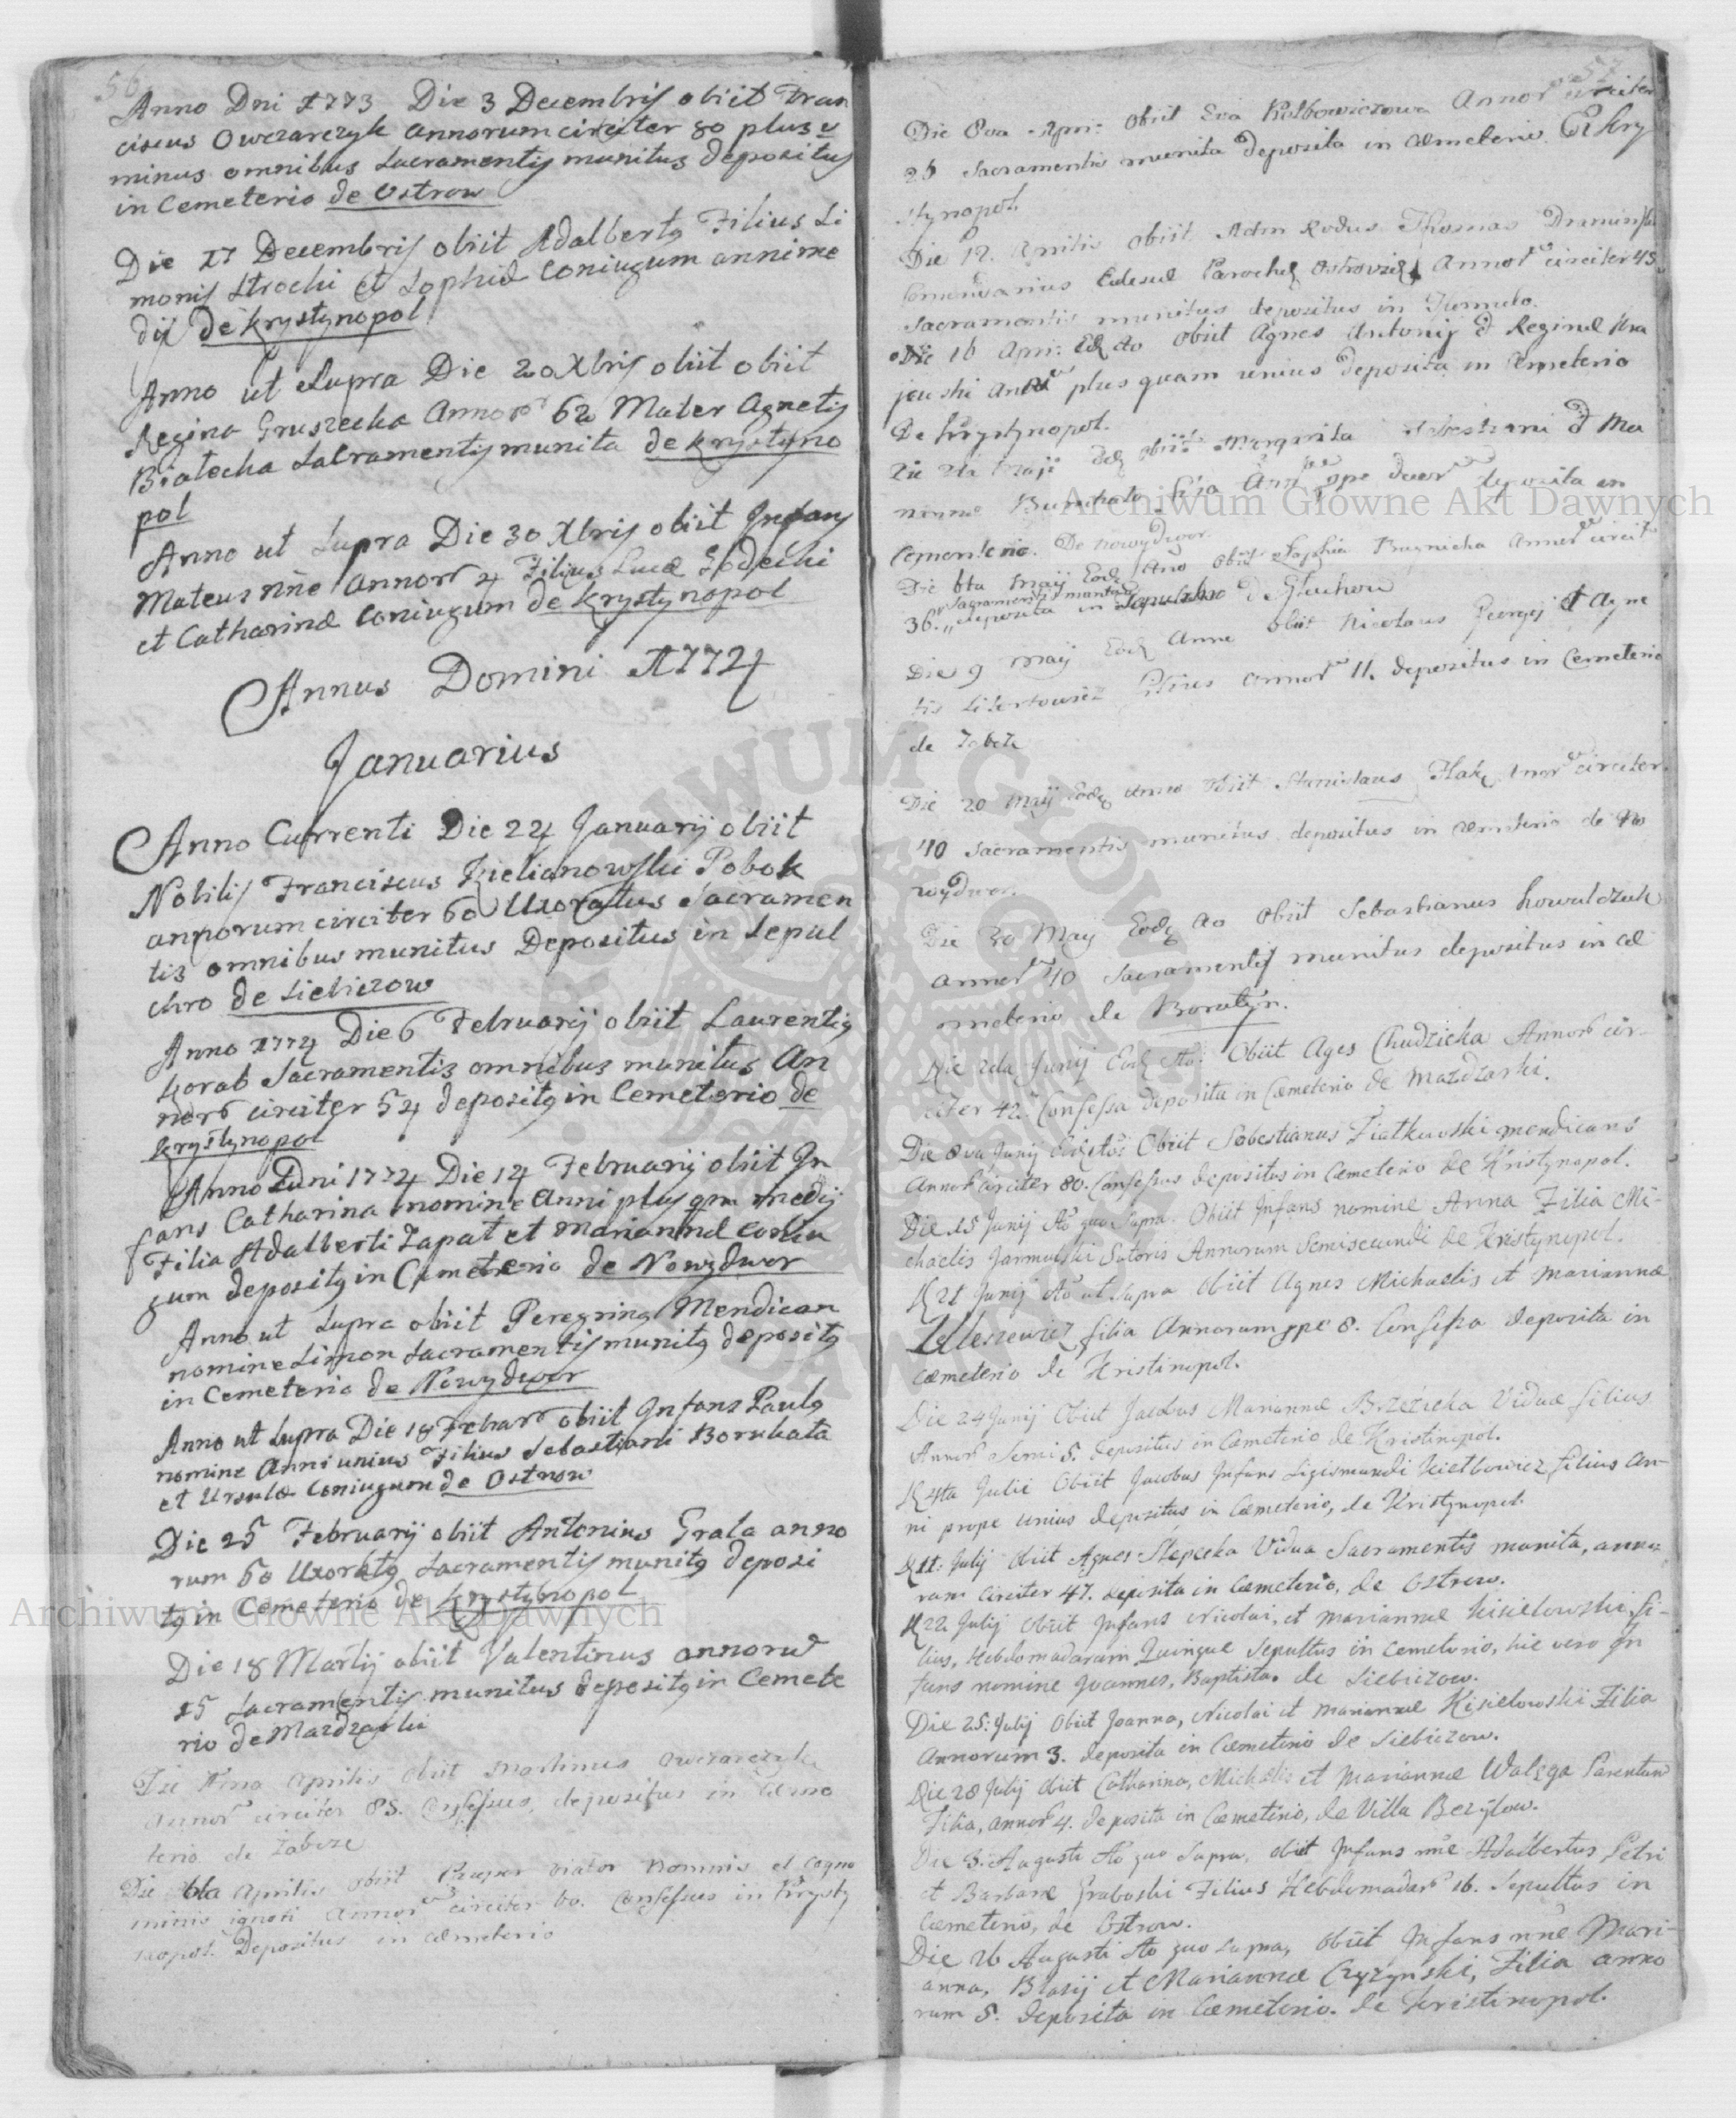 56
Anno Dni 1773 Die 3 Decembris obiit Fran
ciscus Owczarczyk annorum circiter 80 plus v
minus omnibus Sacramentis munitus depositus
in Cemeterio de Ostrow
Die 17 Decembris obiit Adalbertq Filius Si
monis Strochi et Sophiæ Coniugum anni me
dii de Krystynopol
Anno ut Supra Die 20 Xbris obiit obiit
Regina Gruszecka Annor 62 Mater Agnetis
Białecka Sacramentis munita de Krystyno
pol
Anno ut Supra Die 30 Xbris obiit Infans
Mateus nne Annor 4 Filius Lucæ
et Catharinæ Coniugum de Krystynopol
Annus Domini 1774
Januarius
Anno Currenti Die 24 Januarij obiit
Nobilis Franciscus Zielianowski Pobok
annorum circiter 60 Uxoratus Sacramen
tis omnibus munitus Depositus in Sepul
chro de Siebiczow
Anno 1774 Die 6 Februarij obiit Laurentiq
Korab Sacramentis omnibus munitus An
nor circiter 54 depositq in Cemeterio de
Krystynopol
Anno Dni 1774 Die 14 Februarij obiit In
fans Catharina nomine Anni plus qm medij
Filia Adalberti Zapat et Mariannæ Coniu
gum depositq in Cæmeterio de Nowydwor
Anno ut Supra obiit Peregrinq Mendican
nomine Simon Sacramentis munitq depositq
in Cemeterio de Nowydwor
Anno ut Supra Die 18 Febuar obiit Infans Paulq
nomine Anni unius Filius Sebastiani Borukata
et Ursulæ Coniugum de Ostrow
Die 25 Februarij obiit Antonius Grala anno
rum 60 Uxoratq Sacramentis munitq deposi
tq in Cemeterio de Krystynopol
Die 18 Martij obiit Valentinus annoru
15 Sacramentis munitus depositq in Cemete
rio de Mazdzarki
Die Aprilis obiit Martinus Owczarczyk
Annor circiter 85. Confessus, depositus in Cæme
terio de Zabcze
Die 6ta Aprilis obiit Pauper viator Nominis et Cogno
minis ignoti Annor circiter 60. Confessus in Krysty
nopol. Depositus in cæmeterio
57
Die 8va Apri: obiit Eva Kolbowiczowa Annor circiter
26 Sacramentis munita deposita in cæmeterio Kry
stynopol.
Die 12. Aprilis obiit Adm Rndus Thomas Draminski
Comendarius Ecclesiæ Parochq Annor circiter 45
Sacramentis munitus depositus in Tumulo.
Die 16 Apri: Eq Ao obiit Agnes Antonij et Reginæ Kra
jewski plus quam unius deposita in Cemeterio
De Krystynopol.
Die Maji Eodq obiit Margarita Sebastiani et Ma
riannæ fia Ann ppe duor deposita in
Cemeterio. De Nowydwor
Die 6ta Maij Eodq Ano obiit Sophia Annor circit
Sacramentis munita
36. deposita in Sepulchro
Die 9 Maij Eodq Anno obiit Nicolaus Georgij et Agne
tis filius annor 11. depositus in Cemeterio
de Zabcze
Die 20 Maij Eodq Anno obiit Stanislaus Flak Annor circiter
40 Sacramentis munitus depositus in cæmeterio de No
wydwor.
Die 30 Maij Eodq Ao obiit Sebastianus Kowalczuk
annor 40 Sacramentis munitus depositus in cæ
meterio de Boratyn.
Die 2da Junij Eodq Ao: Obiit Ages Chudzicka Annor cir-
citer 42. Confessa deposita in Cæmeterio de Mazdzarki.
Die 8va Junij Obiit Sebestianus Fiatkowski mendicans
Annor circiter 80. Confessus depositus in Cæmeterio de Kristynopol.
Die 15 Junij Ao quo Supra. Obiit Infans nomine Anna Filia Mi-
chaelis Jarmulski Sutoris Annorum Semisecundi de Kristynopol.
D 21 Junij Ao ut Supra obiit Agnes Michaelis et Mariannæ
filia Annorum ppe 8. Confessa deposita in
cæmeterio de Kristinopol.
Die 24 Junij Obiit Jacobus Mariannæ Brzezicka Viduæ filius
Annor Semi 5. depositus in Cæmeterio de Kristinopol.
D 4ta Julii Obiit Jacobus Infans Sigismundi Kiełbowicz filius An-
ni prope unius depositus in Cæmeterio, de Kristynopol.
D 11: Julij obiit Agnes Slepecka Vidua Sacramentis munita, anno-
rum circiter 47. deposita in Cæmeterio, de Ostrow.
D 22 Julij obiit Infans Nicolai, et Mariannæ Kisielowski, fi-
lius, Hebdomadarum Quinque Sepultus in Cemeterio, hic vero In
fans nomine Joannes, Baptista. de Siebiczow.
Die 25: Julij obiit Joanna, Nicolai et Mariannæ Kisielowski Filia
Annorum 3. deposita in Cæmeterio de Siebiczow.
Die 28 Julij obiit Catharina, Michælis et Mariannæ Walęga Parentum
Filia, annor 4. deposita in Cæmeterio, de Villa Bezijow.
Die 3. Augusti Ao quo Supra, obiit Infans nne Adalbertus Petri
et Barbaræ Graboski Filius Hebdomadar 16. Sepultus in
Cæmeterio, de Ostrow.
Die 26 Augusti Ao quo Supra, obiit Infans nne Mari-
anna, Blasij et Mariannæ Czyzynski, Filia anno
rum 5. deposita in Cæmeterio. de Kristinopol.
Archiwum Główne Akt Dawnych
Archiwum Główne Akt Dawnych
ARCHIWUM GŁÓWNE AKT DAWNYCH